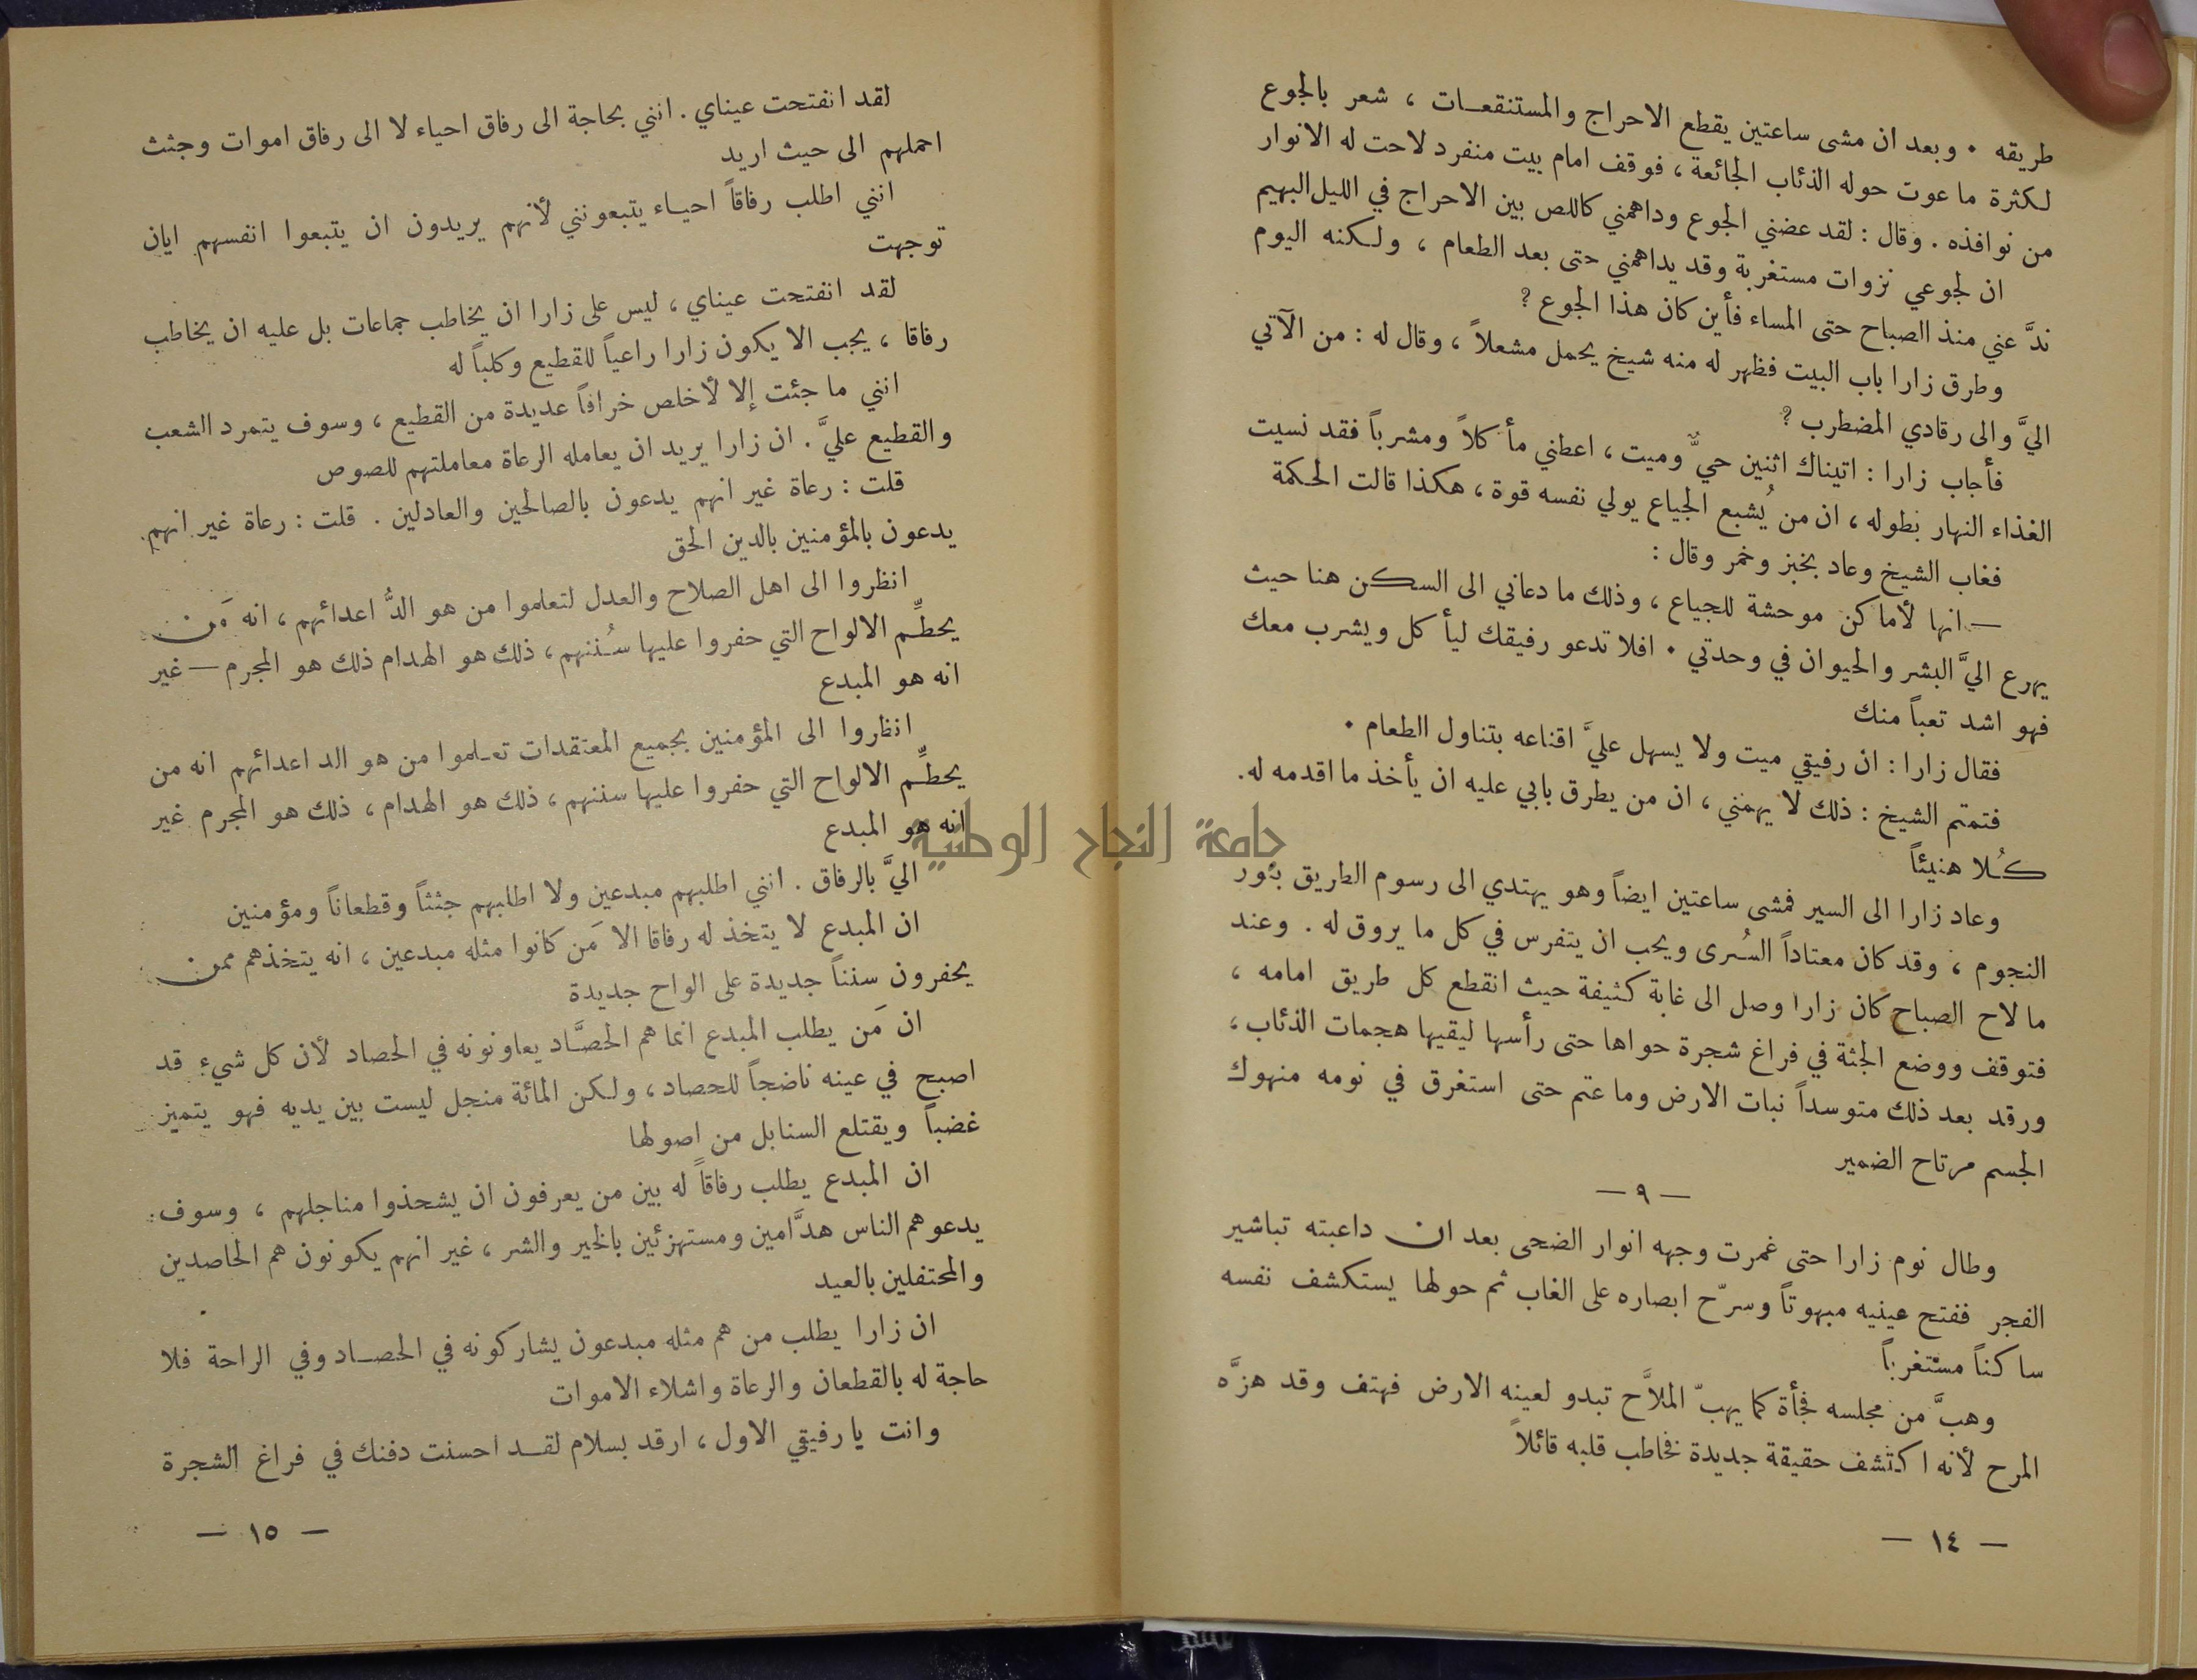 طريقه . وبعد ان مشى ساعتين يقطع الاحراج والمستنقعات ، شعر بالجوع
لكثرة ما عوت حوله الذئاب الجائعة ، فوقف امام بيت منفرد لاحت له الانوار
من نوافذه . وقال : لقد عضني الجوع وداهمني كاللص بين الاحراج في الليل البهيم
ان لجوعي نزوات مستغربة وقد يداهمني حتى بعد الطعام ، ولكنه اليوم
ندَّ عني منذ الصباح حتى المساء فأين كان هذا الجوع ؟
وطرق زارا باب البيت فظهر له منه شيخ يحمل مشعلاً ، وقال له : من الآتي
اليَّ والى رقادي المضطرب ؟
فأجاب زارا : اتيناك اثنين حيٌّ وميت ، اعطني مأكلاً ومشرباً فقد نسيت
الغذاء النهار بطوله ، ان من يُشبع الجياع يولي نفسه قوة ، هكذا قالت الحكمة
فغاب الشيخ وعاد بخبز وخمر وقال :
— انها لأماكن موحشة للجياع ، وذلك ما دعاني الى السكن هنا حيث
يهرع اليَّ البشر والحيوان في وحدتي . افلا تدعو رفيقك ليأكل ويشرب معك
فهو اشد تعباً منك
فقال زارا : ان رفيقي ميت ولا يسهل عليَّ اقناعه بتناول الطعام .
فتمتم الشيخ : ذلك لا يهمني ، ان من يطرق بابي عليه ان يأخذ ما اقدمه له.
كُلا هنيئاً
وعاد زارا الى السير فمشى ساعتين ايضاً وهو يهتدي الى رسوم الطريق بنور
النجوم ، وقد كان معتاداً السُرى ويحب ان يتفرس في كل ما يروق له . وعند
ما لاح الصباح كان زارا وصل الى غابة كثيفة حيث انقطع كل طريق امامه ،
فتوقف ووضع الجثة في فراغ شجرة حواها حتى رأسها ليقيها هجمات الذئاب ،
ورقد بعد ذلك متوسداً نبات الارض وما عتم حتى استغرق في نومه منهوك
الجسم مرتاح الضمير
— ٩ —
وطال نوم زارا حتى غمرت وجهه انوار الضحى بعد ان داعبته تباشير
الفجر ففتح عينيه مبهوتاً وسرّح ابصاره على الغاب ثم حولها يستكشف نفسه
ساكناً مستغرباً
وهبَّ من مجلسه فجأة كما يهبّ الملاَّح تبدو لعينه الارض فهتف وقد هزَّه
المرح لأنه اكتشف حقيقة جديدة فخاطب قلبه قائلاً
— ١٤ —
لقد انفتحت عيناي . انني بحاجة الى رفاق احياء لا الى رفاق اموات وجثث
احملهم الى حيث اريد
انني اطلب رفاقاً احياء يتبعونني لأنهم يريدون ان يتبعوا انفسهم ايان
توجهت
لقد انفتحت عيناي ، ليس على زارا ان يخاطب جماعات بل عليه ان يخاطب
رفاقا ، يجب الا يكون زارا راعياً للقطيع وكلباً له
انني ما جئت إلا لأخلص خرافاً عديدة من القطيع ، وسوف يتمرد الشعب
والقطيع عليَّ . ان زارا يريد ان يعامله الرعاة معاملتهم للصوص
قلت : رعاة غير انهم يدعون بالصالحين والعادلين . قلت : رعاة غير انهم
يدعون بالمؤمنين بالدين الحق
انظروا الى اهل الصلاح والعدل لتعلموا من هو الدُّ اعدائهم ، انه مَن
يحطِّم الالواح التي حفروا عليها سُننهم ، ذلك هو الهدام ذلك هو المجرم — غير
انه هو المبدع
انظروا الى المؤمنين بجميع المعتقدات تعلموا من هو الد اعدائهم انه من
يحطِّم الالواح التي حفروا عليها سننهم ، ذلك هو الهدام ، ذلك هو المجرم غير
انه هو المبدع
اليَّ بالرفاق . انني اطلبهم مبدعين ولا اطلبهم جثثاً وقطعاناً ومؤمنين
ان المبدع لا يتخذ له رفاقا الا مَن كانوا مثله مبدعين ، انه يتخذهم ممن
يحفرون سنناً جديدة على الواح جديدة
ان مَن يطلب المبدع انما هم الحصَّاد يعاونونه في الحصاد لأن كل شيء قد
اصبح في عينه ناضجاً للحصاد ، ولكن المائة منجل ليست بين يديه فهو يتميز
غضباً ويقتلع السنابل من اصولها
ان المبدع يطلب رفاقاً له بين من يعرفون ان يشحذوا مناجلهم ، وسوف
يدعوهم الناس هدَّامين ومستهزئين بالخير والشر ، غير انهم يكونون هم الحاصدين
والمحتفلين بالعيد
ان زارا يطلب من هم مثله مبدعون يشاركونه في الحصاد وفي الراحة فلا
حاجة له بالقطعان والرعاة واشلاء الاموات
وانت يا رفيقي الاول ، ارقد بسلام لقد احسنت دفنك في فراغ الشجرة
— ١٥ —
جامعة النجاح الوطنية